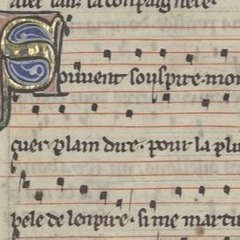 auer sanz la conpaignete.
Souuent souspire mon
cuer plain dire. pour la plus
bele de lenpire. si me martir